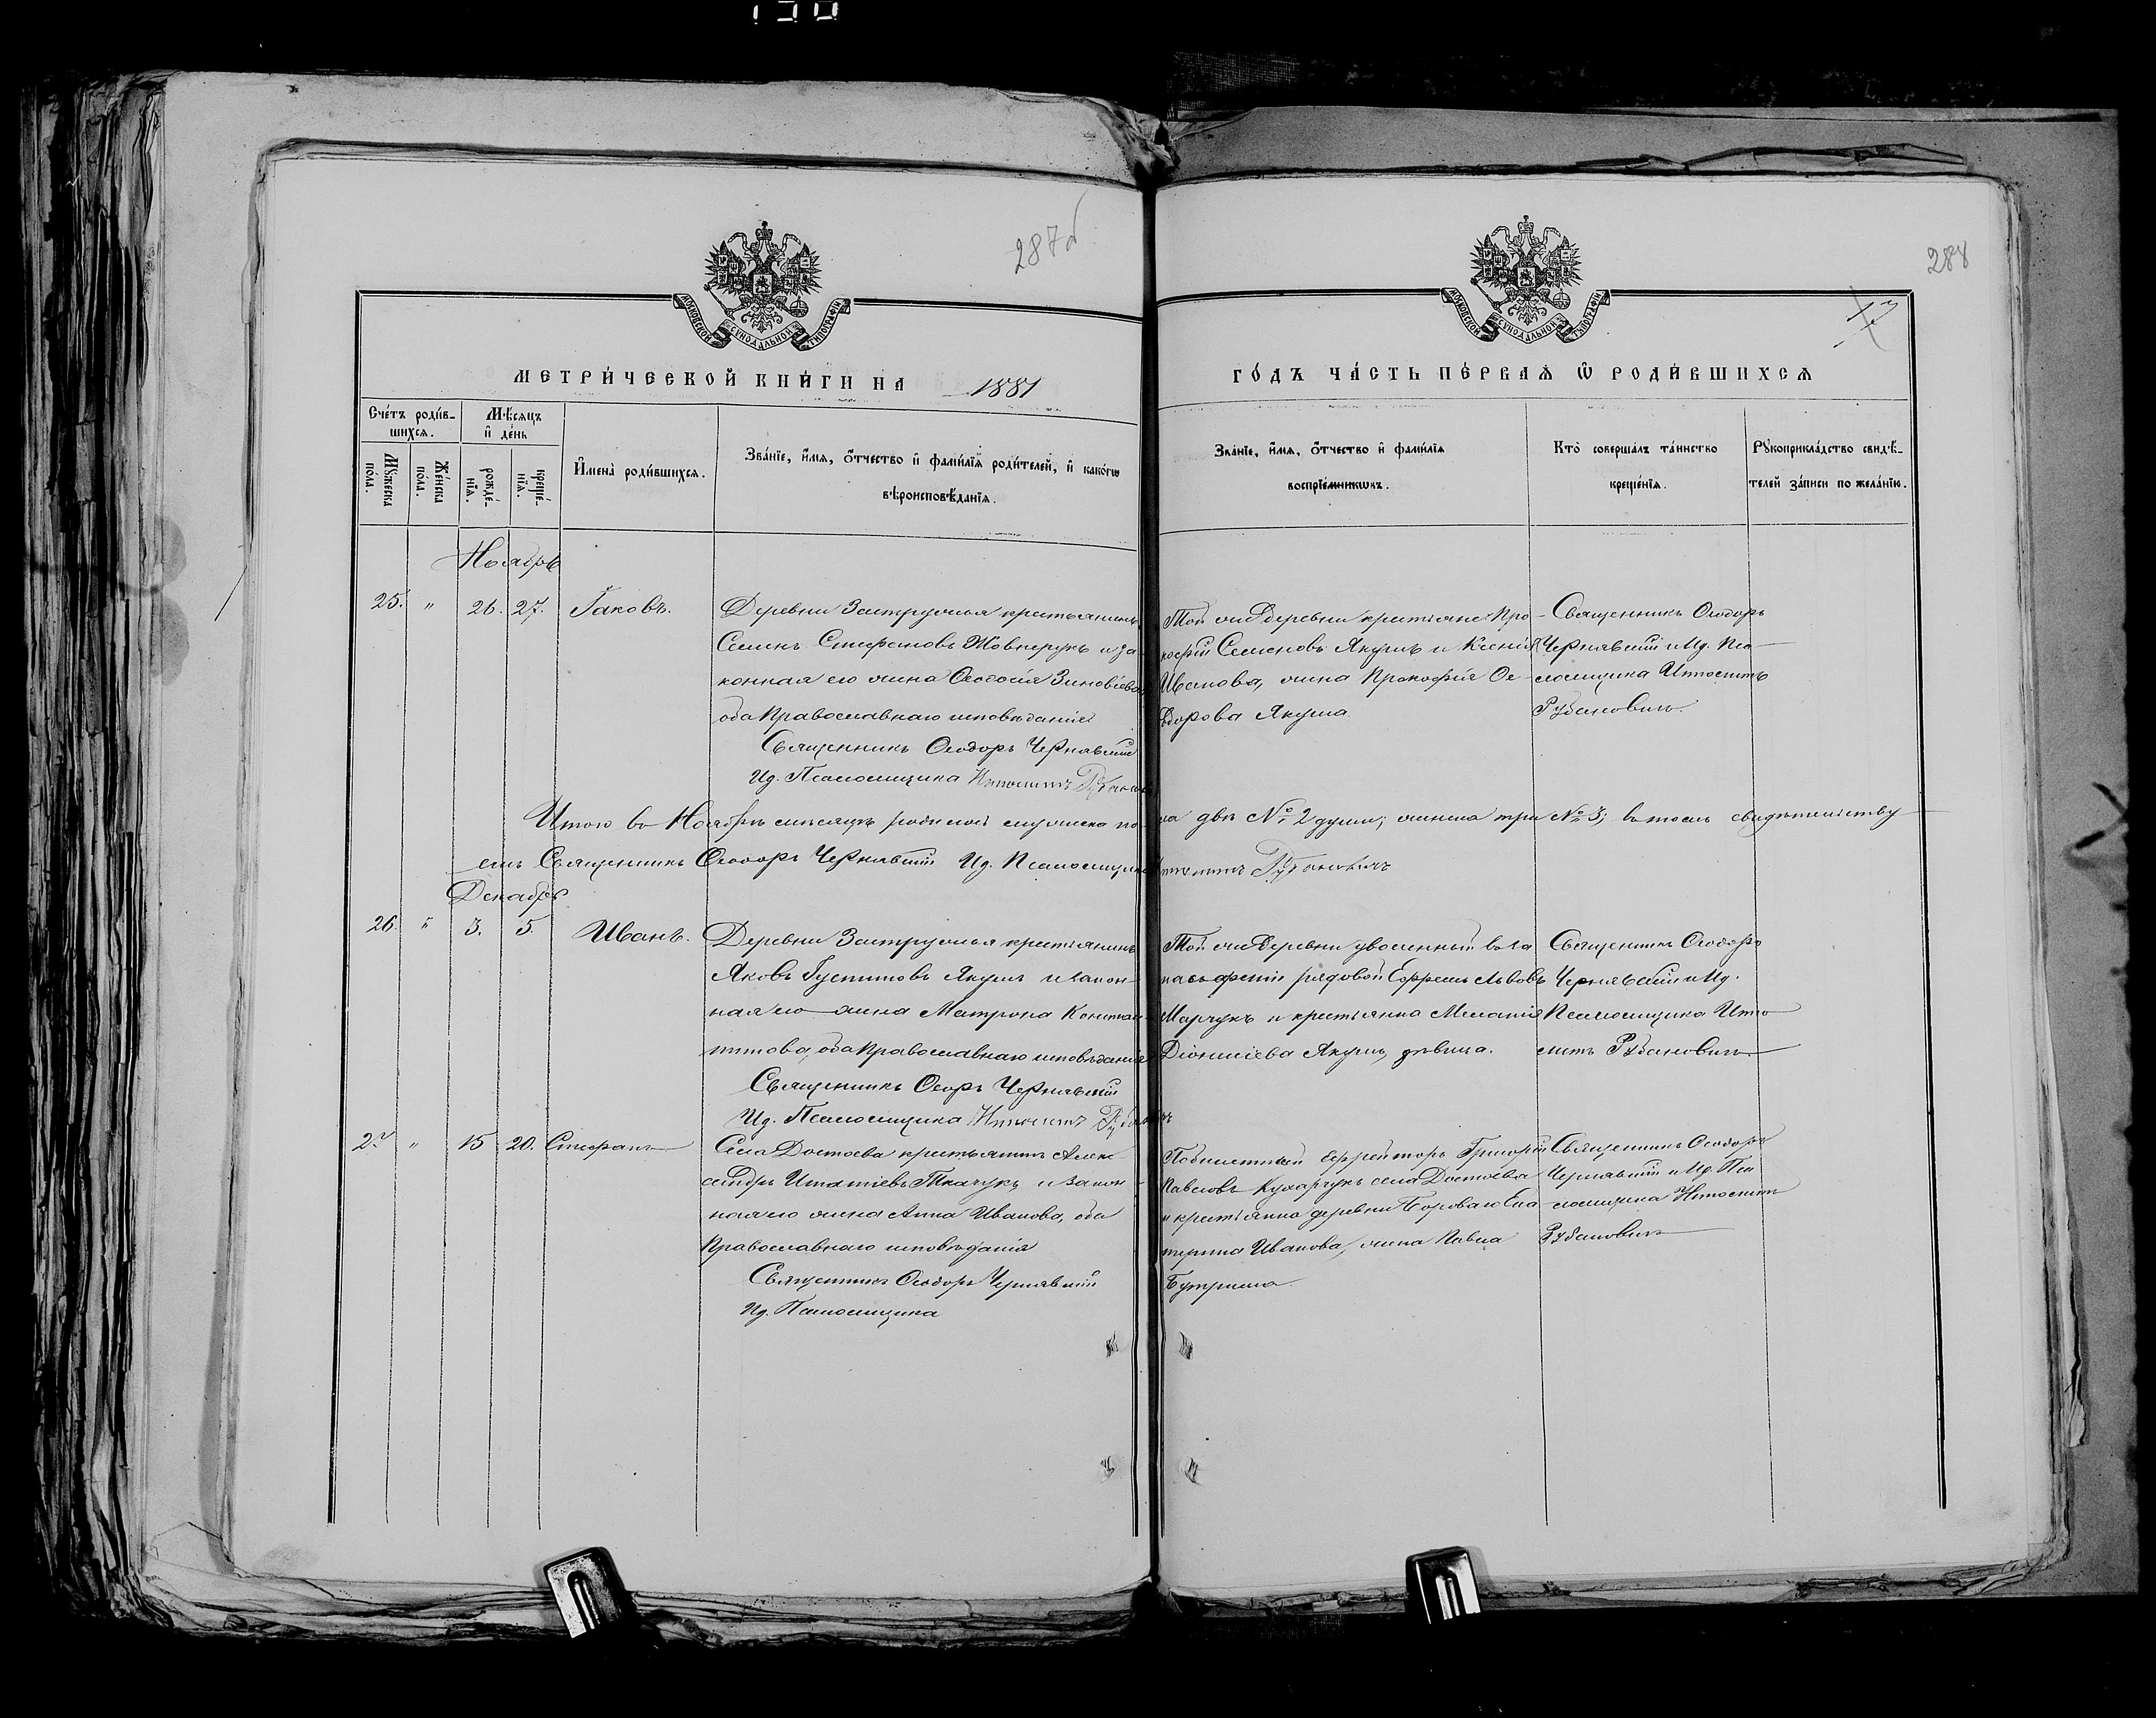 287об
288
17
МОСКОВСКОЙ СѴНОДАЛЬНОЙ ТИПОГРАФІИ
МОСКОВСКОЙ СѴНОДАЛЬНОЙ ТИПОГРАФІИ
МЕТРИ́ЧЕСКОЙ КНИ́ГИ НА 1881
ГО́ДЪ ЧА́СТЬ ПЕ́РВАѦ Ѽ РОДИ́ВШИХСѦ
Сче́тъ роди́в-
шихсѧ.
Мѣ́сѧцъ
и҆ де́нь
Мꙋ́жеска
по́ла.
Же́нска
по́ла.
рожде́-
нїѧ.
креще́-
нїѧ.
И҆мена̀ роди́вшихсѧ.
Зва́нїе, и҆́мѧ, ѻ҆́тчество и҆ фами́лїѧ роди́телей, и҆ како́гѡ
вѣроисповѣ́данїѧ.
Зва́нїе, и҆́мѧ, ѻ҆́тчество и҆ фами́лїѧ
воспрїе́мникѡвъ.
Кто̀ соверша́лъ та́инство
креще́нїѧ.
Рꙋкоприкла́дство свидѣ́-
телей за́писи по жела́нїю.
Ноябрь
25. " 26. 27. Іаковъ.
Деревни Заструменья крестьянинъ
Семенъ Стефановъ Жовнерукъ и за-
конная его жена Ѳеодосія Зиновіева,
оба Православнаго исповѣданія
Священникъ Ѳеодоръ Чернявскій
Ид. Псаломщика Ипполитъ Рубановичъ
Той же деревни крестьяне: Про-
кофій Семеновъ Якушъ и Ксенія
Иванова, жена Прокофія Ѳе-
одорова Якуша.
Священникъ Ѳеодоръ
Чернявскій и Ид. Пса-
ломщика Ипполитъ
Рубановичъ.
Итого въ Ноябрѣ мѣсяцѣ родилось мужеска по-
ла двѣ № 2 души; женска три № 3; въ томъ свидѣтельству-
емъ Священникъ Ѳеодоръ Чернявскій Ид. Псаломщика
Ипполитъ Рубановичъ
Декабрь
26. " 3. 5. Иванъ.
Деревни Заструменья крестьянинъ
Яковъ Іустиновъ Якушъ и закон-
ная его жена Матрона Констан-
тинова, оба Православнаго исповѣданія
Священникъ Ѳеоръ Чернявскій
Ид. Псаломщика Ипполитъ Рубановичъ
Той же деревни уволенный въ за-
пасъ арміи рядовой Ефремъ Львовъ
Марчукъ и крестьянка Меланія
Діонисіева Якушъ, дѣвица.
Священникъ Ѳеодоръ
Чернявскій и Ид.
Псаломщика Иппо-
литъ Рубановичъ
27 " 15 20. Стефанъ
Села Достоева крестьянинъ Алек-
сандръ Игнатіевъ Ткачукъ и закон-
ная его жена Анна Иванова, оба
Православнаго исповѣданія
Священникъ Ѳеодоръ Чернявскій
Ид. Псаломщика
Ефрейторъ Григорій
Павловъ Кухарчукъ села Достоева
и крестьянка деревни Бороваго Ека-
терина Иванова, жена Павла
Бутрима.
Священникъ Ѳеодоръ
Чернявскій и Ид. Пса-
ломщика Ипполитъ
Рубановичъ